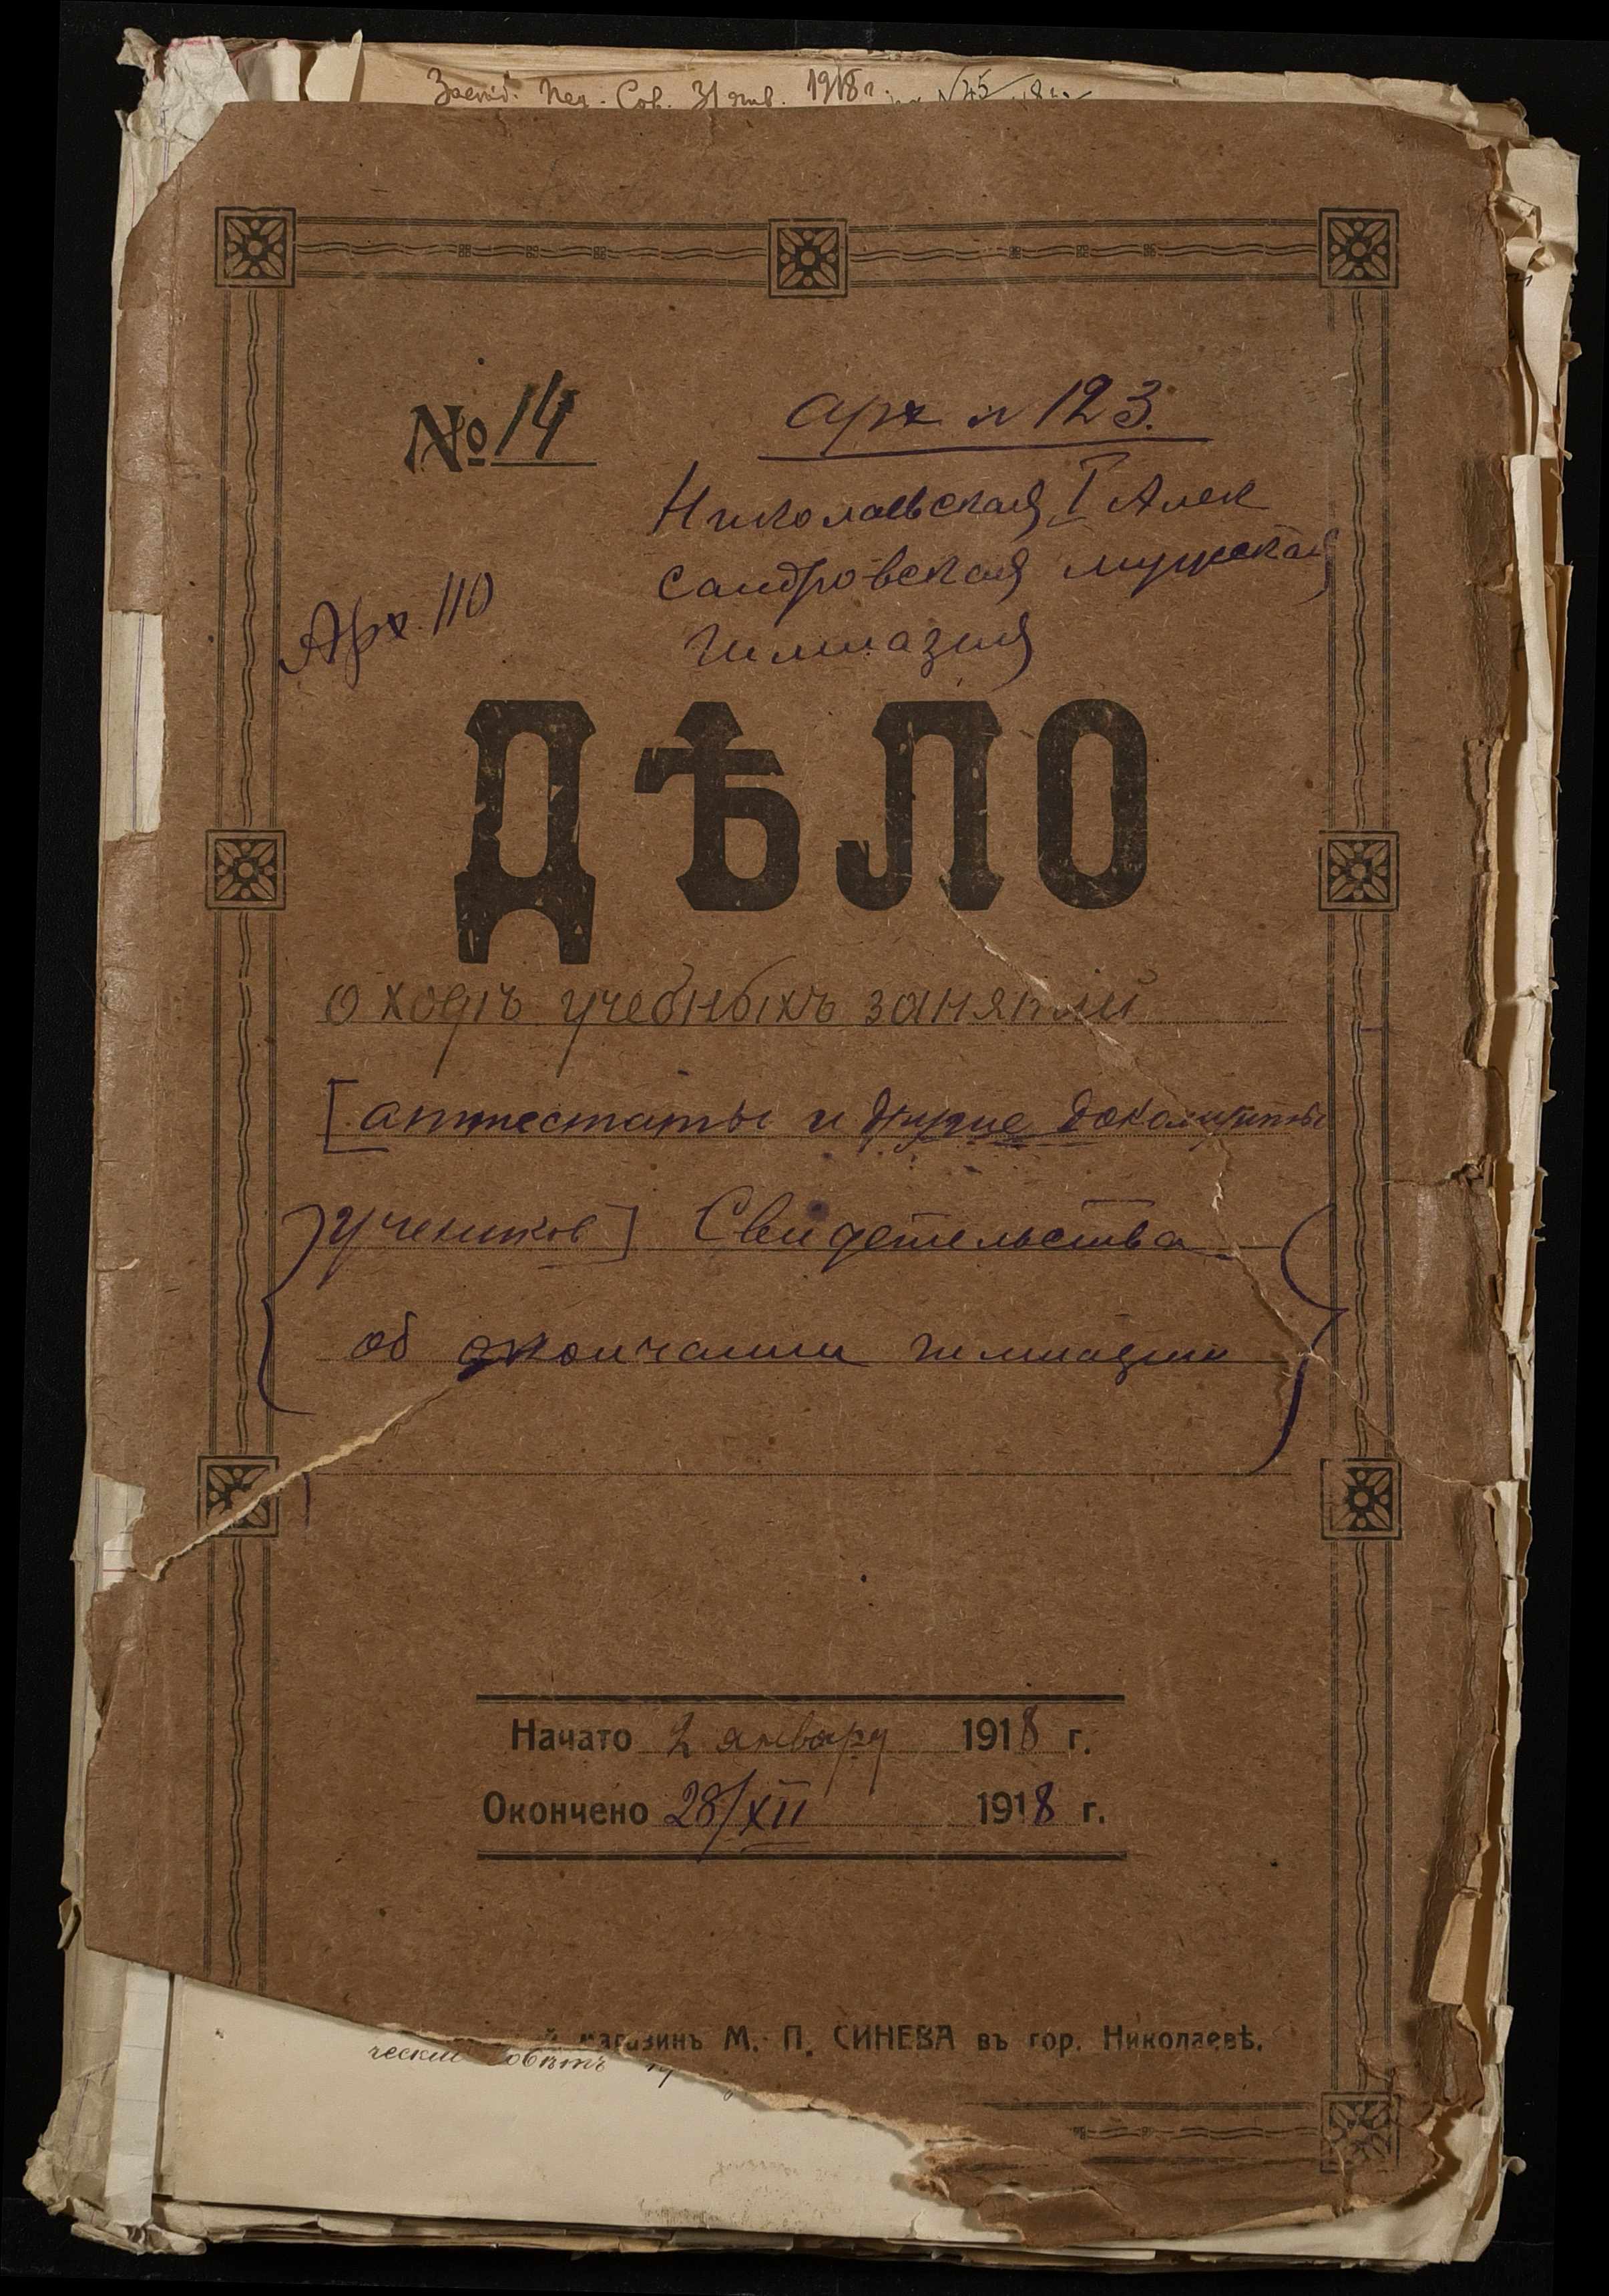 Засѣд. Пед. Сов. 31 янв. 1918 г. № 45
№ 14
Арх № 123.
Николаевская I Алек
сандровская мужская
гимназия
Арх. 110
ДѢЛО
о ходѣ учебныхъ занятий
[аттестаты и другие документы
учеников] Свидетельства
об окончании гимназии
Начато 2 январу 1918 г.
Окончено 28/XII 1918 г.
магазинъ М. П. СИНЕВА въ гор. Николаевѣ.
ческий Совѣтъ